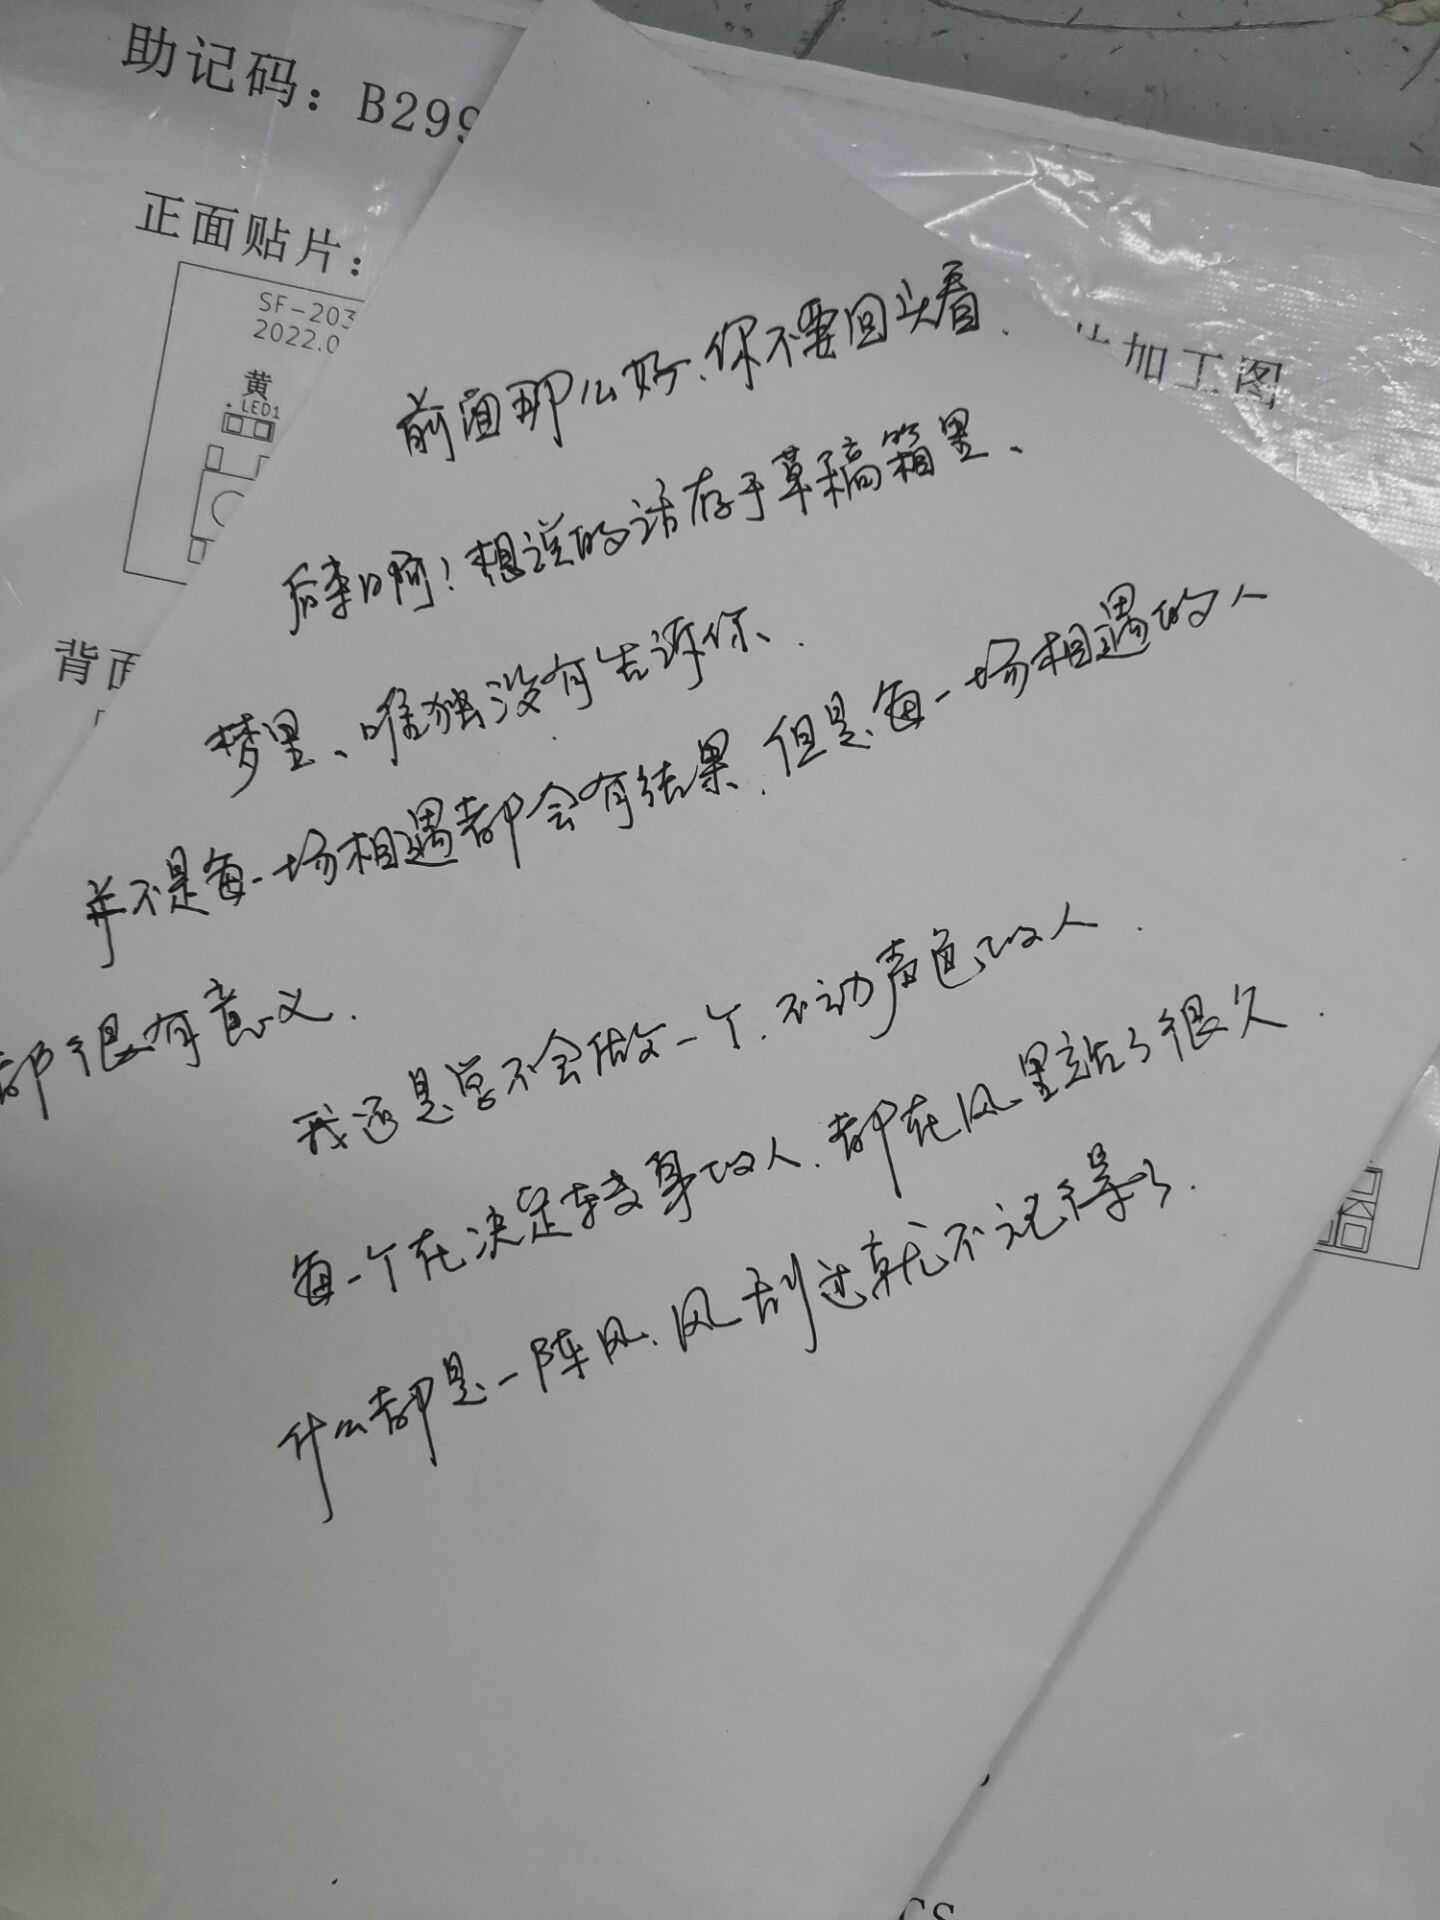 助记码：B299
正面贴片：
SF-203
2022.0
黄
+ LED1
片加工图
背面
前面那么好、你不要回头看、
后来啊！想说的话存于草稿箱里、
梦里、唯独没有告诉你、
并不是每一场相遇都会有结果、但是每一场相遇的人
都很有意义.
我还是学不会做一个、不动声色的人.
每一个在决定转身的人、都在风里站了很久.
什么都是一阵风、风刮过就不记得了.
CS